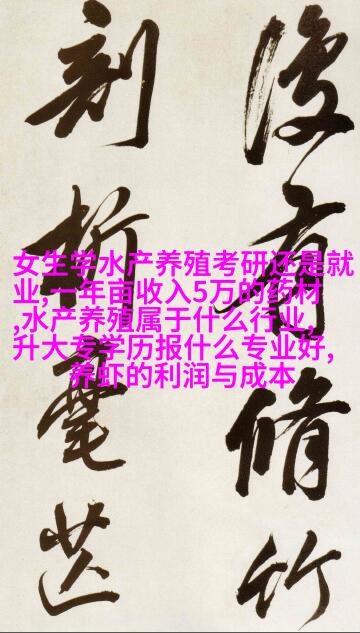 有脩竹
析毫
女生学水产养殖考研还是就
业,一年亩收入5万的药材
,水产养殖属于什么行业,
升大专学历报什么专业好,
养虾的利润与成本